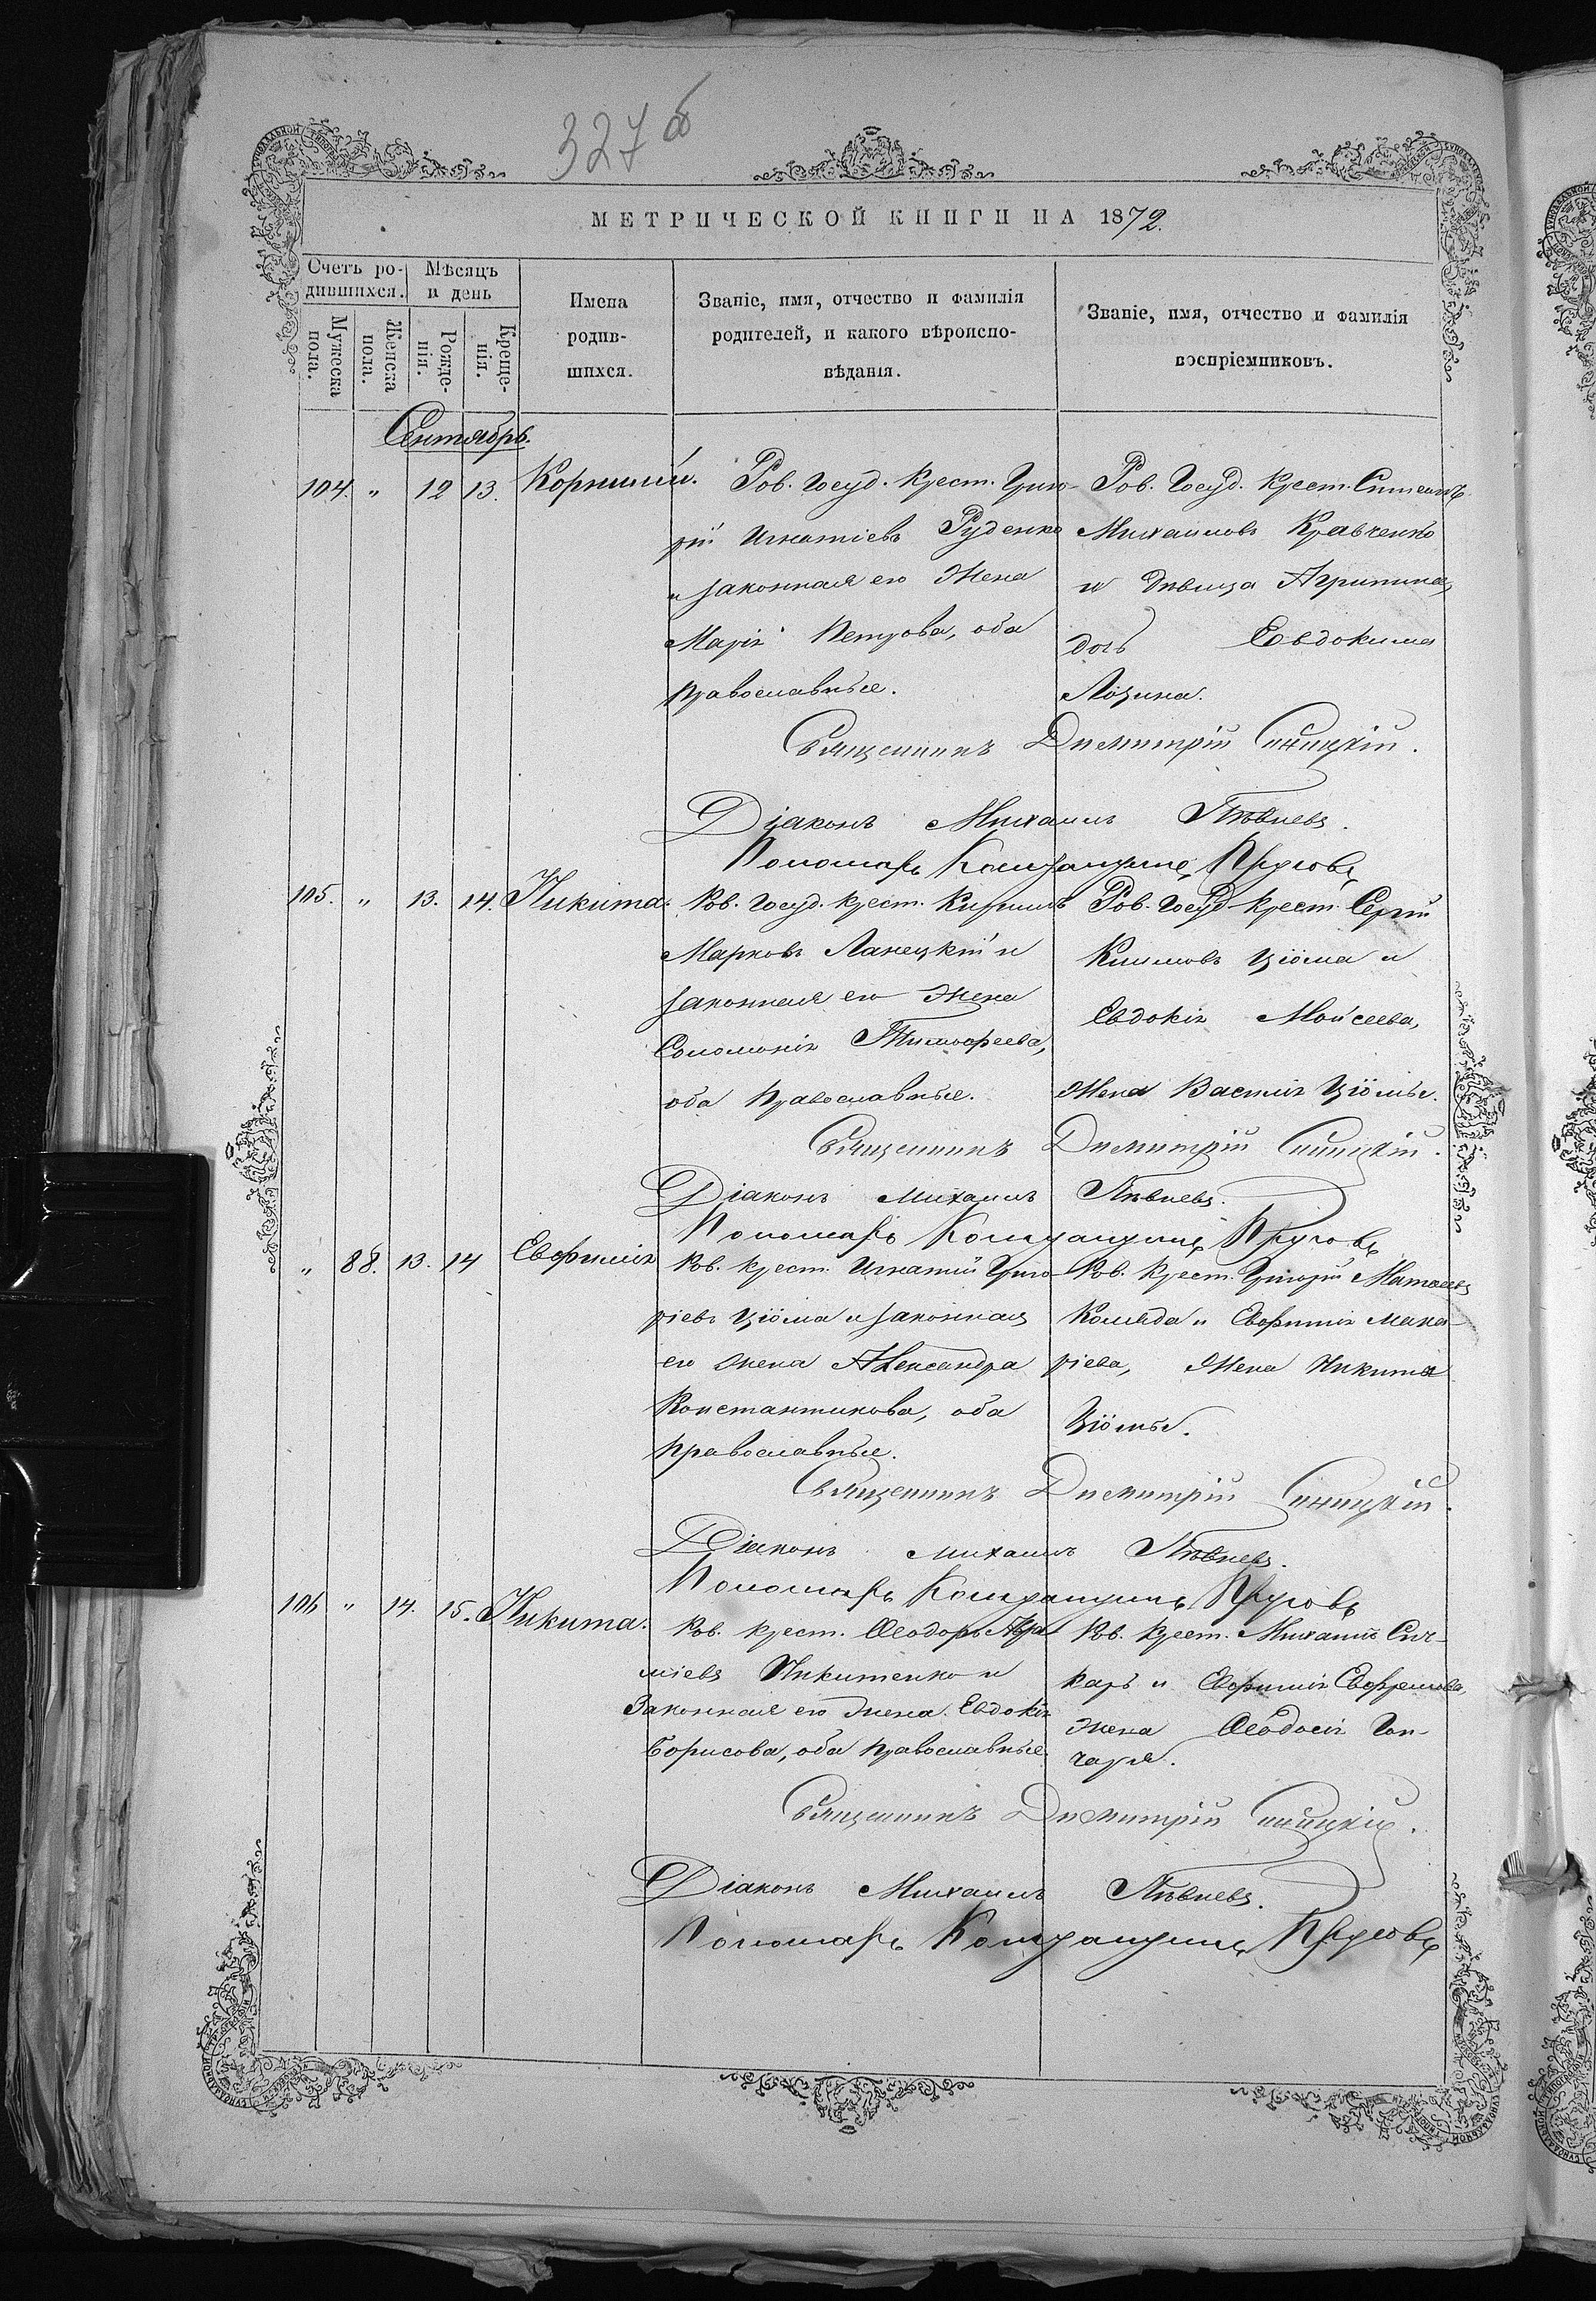 327 б
МЕТРИЧЕСКОЙ КНИГИ НА 1872.
Счетъ ро-
дившихся.
Мѣсяцъ
и день
Мужеска
пола.
Женска
пола.
Рожде-
нія.
Креще-
нія.
Имена
родив-
шихся.
Званіе, имя, отчество и фамилія
родителей, и какого вѣроиспо-
вѣданія.
Званіе, имя, отчество и фамилія
воспріемниковъ.
Сентябрь.
104. " 12 13. Корнилій.
Ров. Госуд. Крест. Григо-
рій Игнатіевъ Руденко
и законная его жена
Марія Петрова, оба
православные.
Ров. Госуд. Крест. Симеонъ
Михаиловъ Кравченко
и дѣвица Агрипина,
дочь Евдокима
Лозина.
Священникъ Димитрій Синицкій.
Діаконъ Михаилъ Пѣвневъ.
Пономарь Прутовъ
105. " 13. 14. Никита.
Ков. Госуд. крест. Кириллъ
Марковъ Ланецкій и
законная его жена
Соломонія Тимофеева,
оба православные.
Ров. Госуд. крест. Сергій
Климовъ Цюма и
Евдокія Мойсеева,
жена Василія Цюмы.
Священникъ Димитрій Синицкій.
Діаконъ Михаилъ Пѣвневъ.
Пономарь Прутовъ
" 88. 13. 14 Евфимія
Ков. крест. Игнатій Григо-
ріевъ Цюма и законная
его жена Александра
Константинова, оба
православные.
Ков. крест. Григорій Матвеевъ
Коляда и Евфимія Мака-
ріева, жена Никиты
Цюмы.
Священникъ Димитрій Синицкій.
Діаконъ Михаилъ Пѣвневъ.
Пономарь Прутовъ
106 " 14. 15. Никита.
Ков. крест. Ѳеодоръ Авра-
міевъ Никитенко и
Законная его жена Евдокія
Борисова, оба православные.
Ков. крест. Михаилъ Сич-
каръ и Евфимія Евфремова,
жена Ѳеодосія Гон-
чаря.
Священникъ Димитрій Синицкій.
Діаконъ Михаилъ Пѣвневъ.
Пономарь Прутовъ